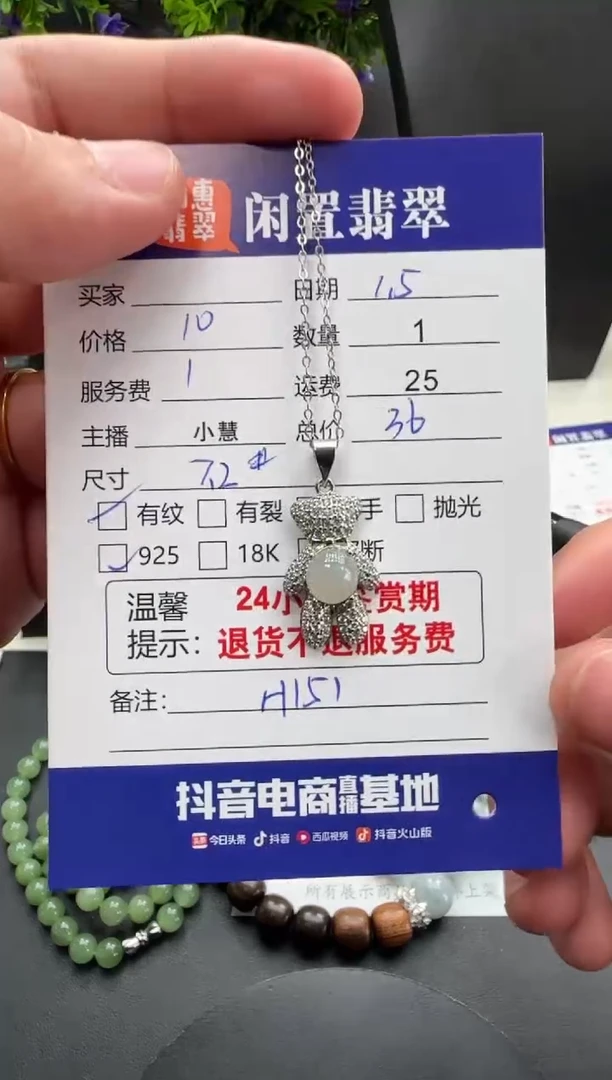 惠
翡翠
闲置翡翠
买家
日期 1.5
价格 10
数量 1
服务费 1
运费 25
主播 小慧
总价 36
尺寸 7.2#
有纹 有裂 手 抛光
925 18K 断
温馨
提示：
24小 赏期
退货不退服务费
备注： H151
抖音电商直播基地
头条 今日头条 抖音 西瓜视频 抖音火山版
闲置翡翠
所有展示商
上架